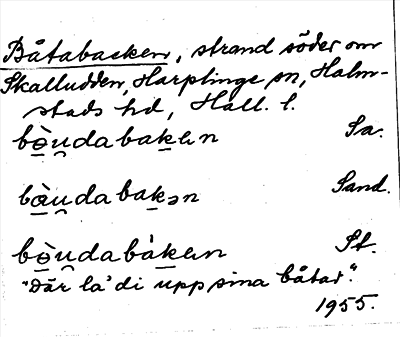 Båtabacken, strand söder om
Skalludden, Harplinge sn, Halm-
stads hd, Hall. l.
bò̤u̯dabakɛn Sa.
bàu̯dabakən Sand.
bò̤u̯dabàkɛn St.
"Där la' di upp sina båtar."
1955.